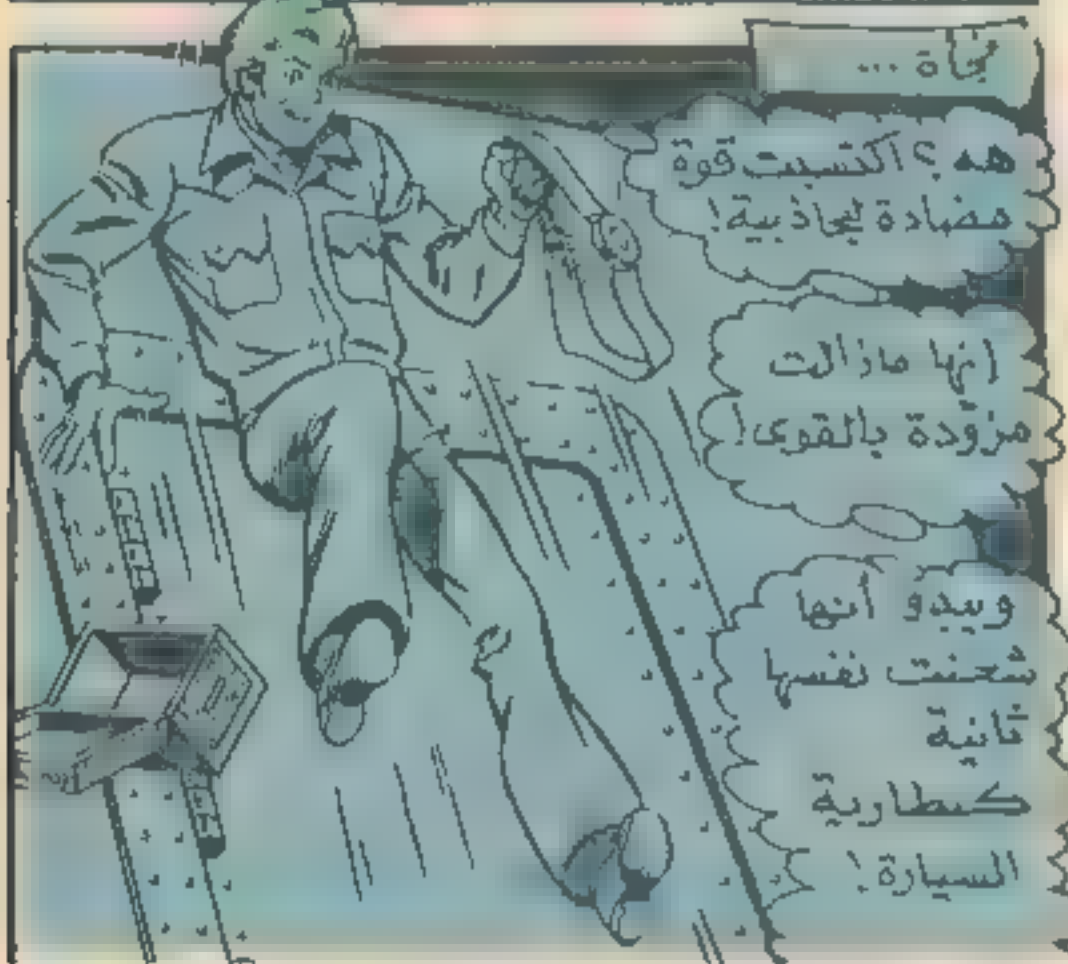 فجأة ...
هه؟ اكتسبت قوة
مضادة لجاذبية!
إنها مازالت
مزوّدة بالقوى!
ويبدو أنها
شحنت نفسها
ثانية
كبطارية
السيارة!